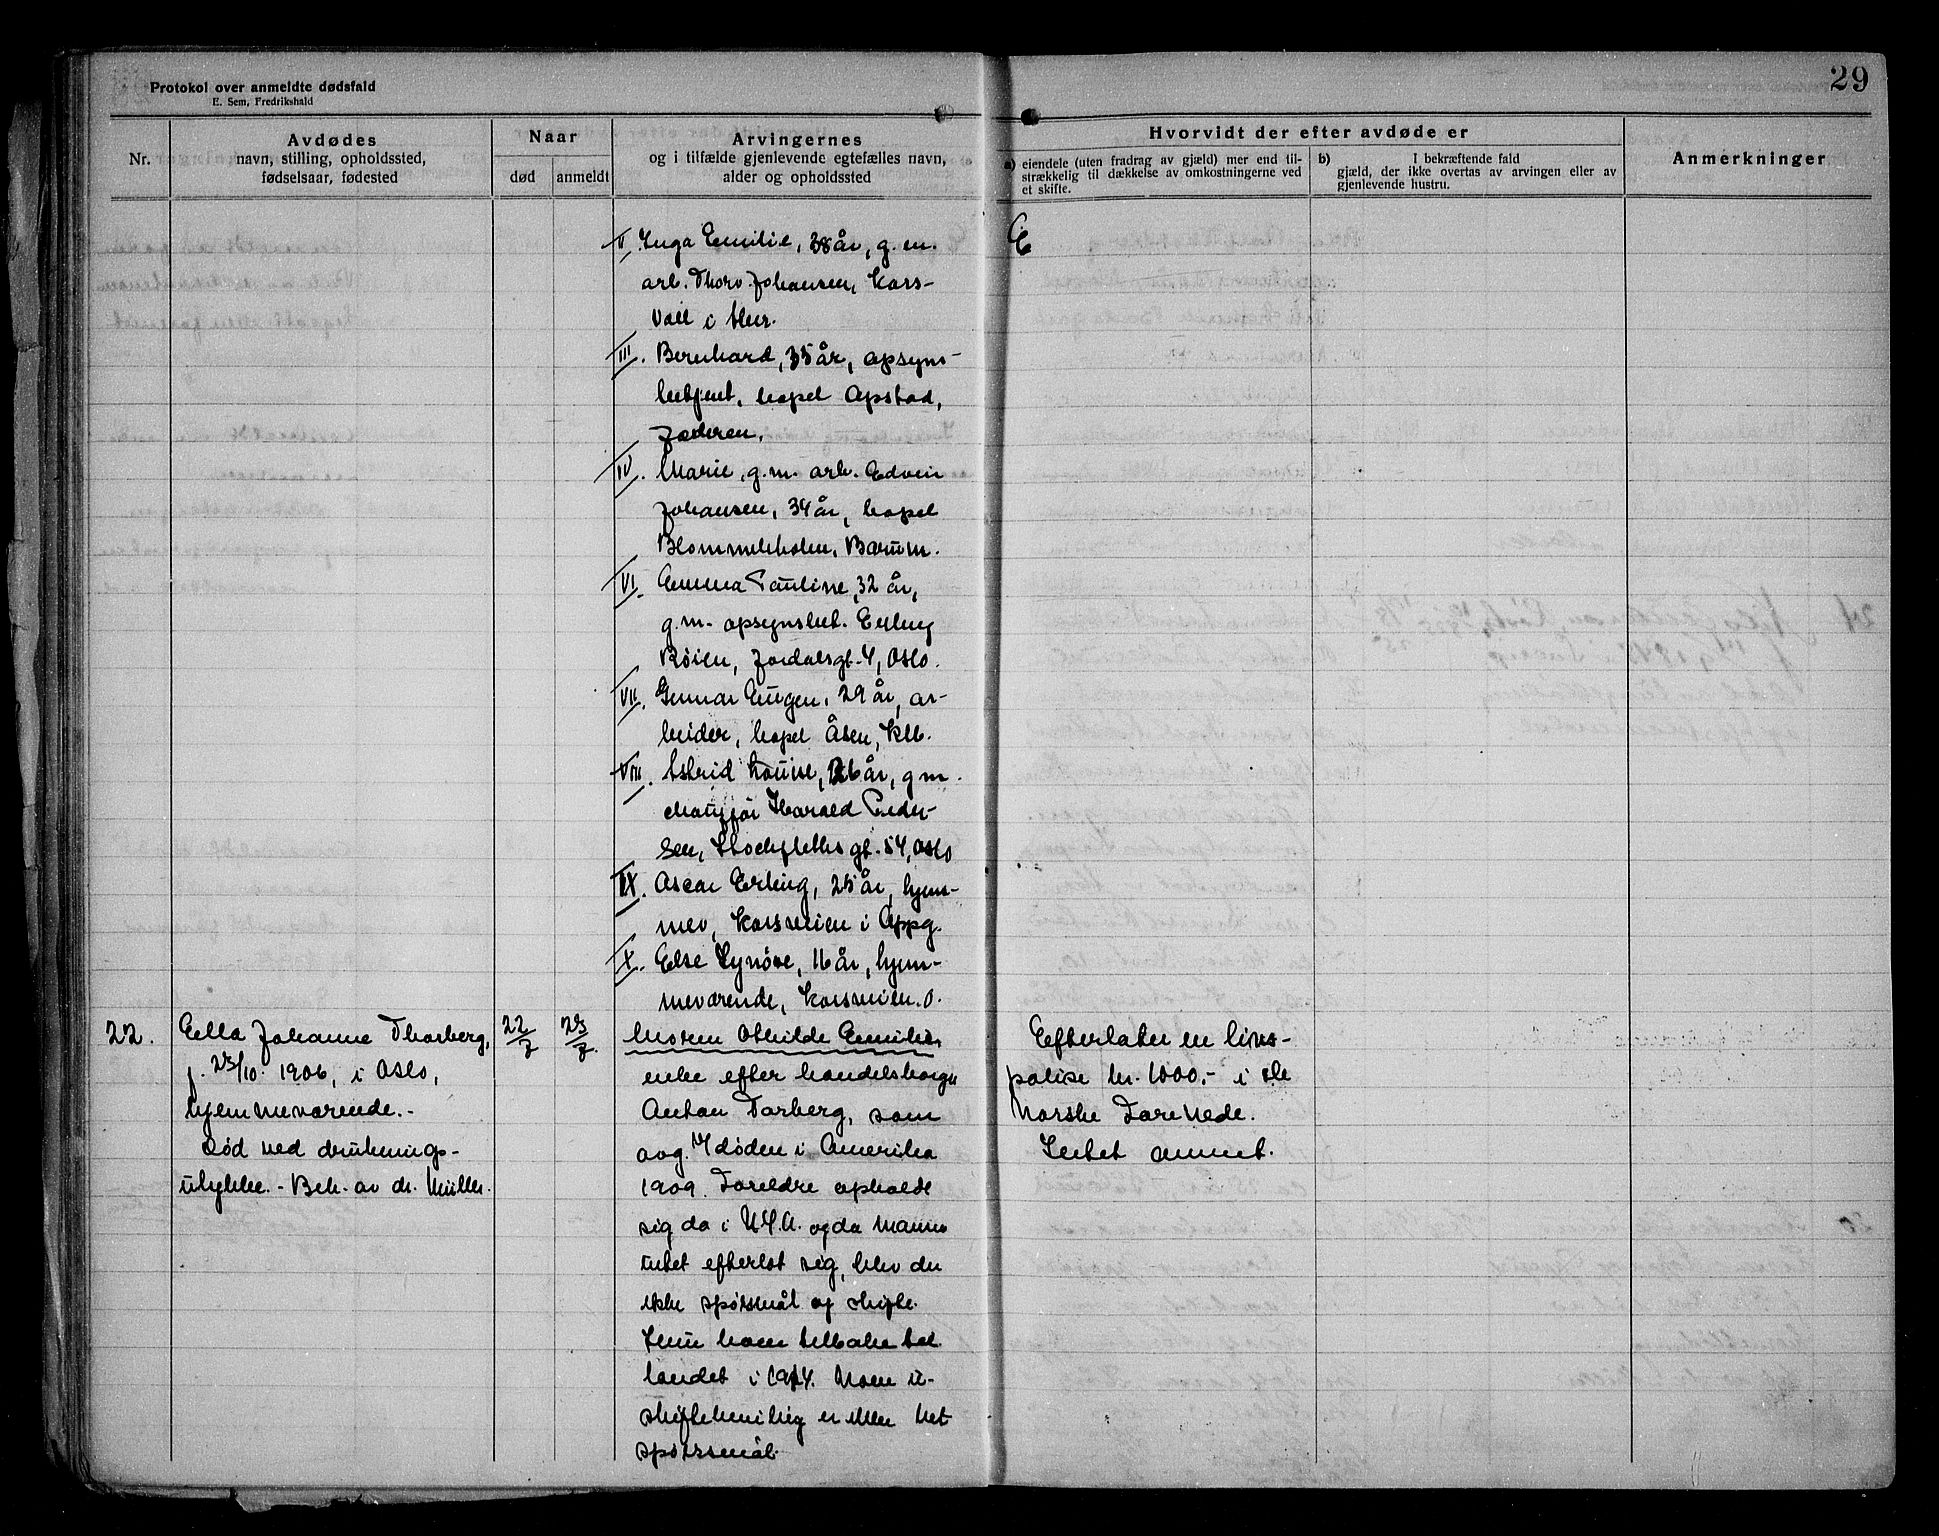 29
Protokol over anmeldte dødsfald
E. Sem, Fredrikshald
Nr.
Avdødes
navn, stilling, opholdssted,
fødselsaar, fødested
Naar
død
anmeldt
Arvingernes
og i tilfælde gjenlevende egtefælles navn,
alder og opholdssted
Hvorvidt der efter avdøde er
a) eiendele (uten fradrag av gjæld) mer end til-
strækkelig til dækkelse av omkostningerne ved
et skifte.
b) I bekræftende fald
gjæld, der ikke overtas av arvingen eller av
gjenlevende hustru.
Anmerkninger
Inga Emilie, 38 år, g.m.
arb. Thorv. Johansen, Kors-
voll i
III. Bernhard, 35 år, opsyns-
betjent, bopel Opstad,
Jæderen.
IV. Marie, g.m. arb. Edvin
Johansen, 34 år, bopel
Blommeholen, Bærum.
VI. Emma Pauline, 32 år,
g.m. opsynsbet. Erling
Røien, Jordalsgt. 4, Oslo.
VII. Gunnar Eugen, 29 år, ar-
beider, bopel Åsen, Klb.
VIII. Astrid Louise, 26 år, g m.
chauffør Harald Peder-
sen, Stockfleths gt. 54, Oslo
IX. Oscar Erling, 25 år, hjem-
mev, Korsveien i Oppg.
X. Else Synøve, 16 år, hjem-
meværende, Korsveien. O.
22.
Ella Johanne Thorberg,
f. 23/10. 1906, i Oslo,
hjemmeværende. -
Død ved druknings-
ulykke. - Bek. av dr. Müller.
22/7
23/7.
Moren Othilde Emilie,
enke efter handelsborger
Anton Torberg, som
avg. v/døden i Amerika
1909. Foreldre opholdt
sig da i U.S.A. og da mannen
intet efterlot sig, blev der
ikke spørsmål op skifte.
Hun kom tilbake til
landet i 1914. Noen u-
skiftebevilling er eller ikke
spørsmål.
Efterlater en livs-
polise kr. 1000,- i De
Norske Forenede.
Intet annet.